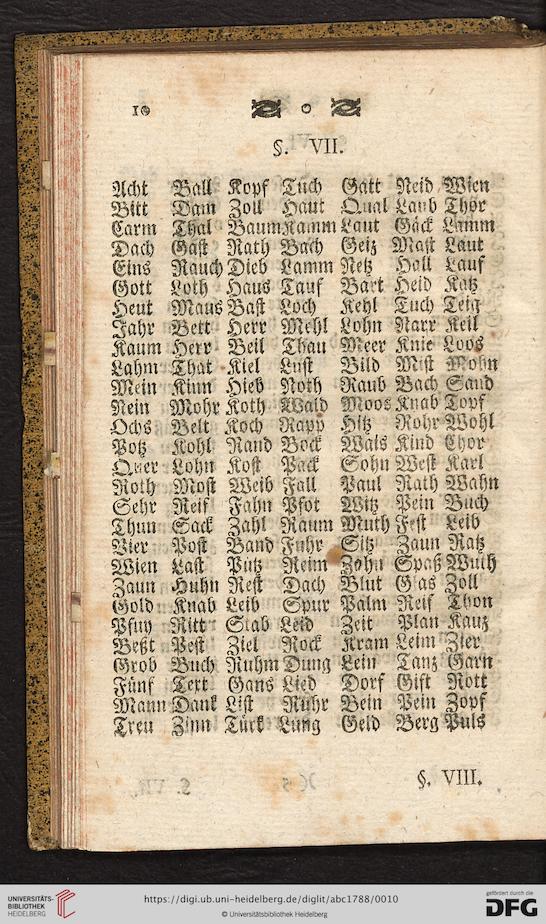 10
§. VII.
Acht Ball Kopf Tuch Gatt Neid Wien
Bitt Dam Zoll Haut Qual Laub Thor
Carm Thal Baum Kamm Laut Gäck Lamm
Dach Gast Rath Bach Geiz Mast Laut
Eins Rauch Dieb Lamm Netz Holl Lauf
Gott Loth Haus Tauf Bart Heid Katz
Heut Maus Bast Loch Kehl Tuch Teig
Jahr Bett Herr Mehl Lohn Narr Keil
Kaum Herr Beil Thau Meer Knie Loos
Lahm That Kiel Lust Bild Mist Mohn
Mein Kinn Hieb Noth Raub Bach Sand
Nein Mohr Koth Wald Moos Knab Topf
Ochs Belt Koch Rapp Hitz Rohr Wohl
Potz Kohl Rand Bock Wais Kind Chor
Quer Lohn Kost Pack Sohn West Karl
Roth Most Weib Fall Paul Rath Wahn
Sehr Reif Fahn Pfot Witz Pein Buch
Thun Sack Zahl Raum Muth Fest Leib
Vier Post Band Fuhr Sitz Zaun Ratz
Wien Last Pütz Reim Zohn Spaß Wuth
Zaun Huhn Rest Dach Blut Gias Zoll
Gold Knab Leib Spur Palm Reif Thon
Pfuy Ritt Stab Leid Zeit Plan Kauz
Beßt Pest Ziel Rock Kram Leim Zier
Grob Buch Ruhm Dung Lein Tanz Garn
Fünf Text Gans Lied Dorf Gift Rott
Mann Dank List Ruhr Bein Pein Zopf
Treu Zinn Türk Lung Geld Berg Puls
§. VIII.
UNIVERSITÄTS-
BIBLIOTHEK
HEIDELBERG
https://digi.ub.uni-heidelberg.de/diglit/abc1788/0010
© Universitätsbibliothek Heidelberg
gefördert durch die
DFG